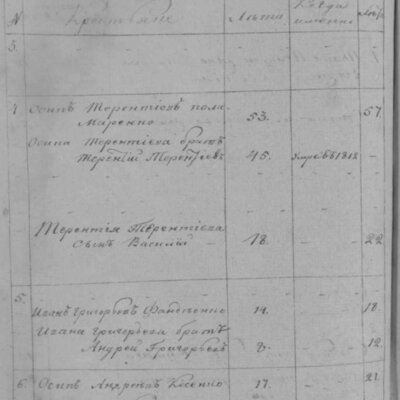 N Крестьяне Лѣта Когда именно Лѣта
3.
4. Осипъ Терентіевъ поли
Маренко 53. — 57.
Осипа Терентіева братъ
Терентій Терентіевъ 45. Умре въ 1812 —
Терентія Терентіева
Сынъ Василій 18. — 22
5.
Иванъ Григорьевъ 14. — 18.
Ивана Григорьева братъ
Андрей Григорьевъ 8. — 12.
6. Осипъ Андреевъ Косенко 17. — 21.